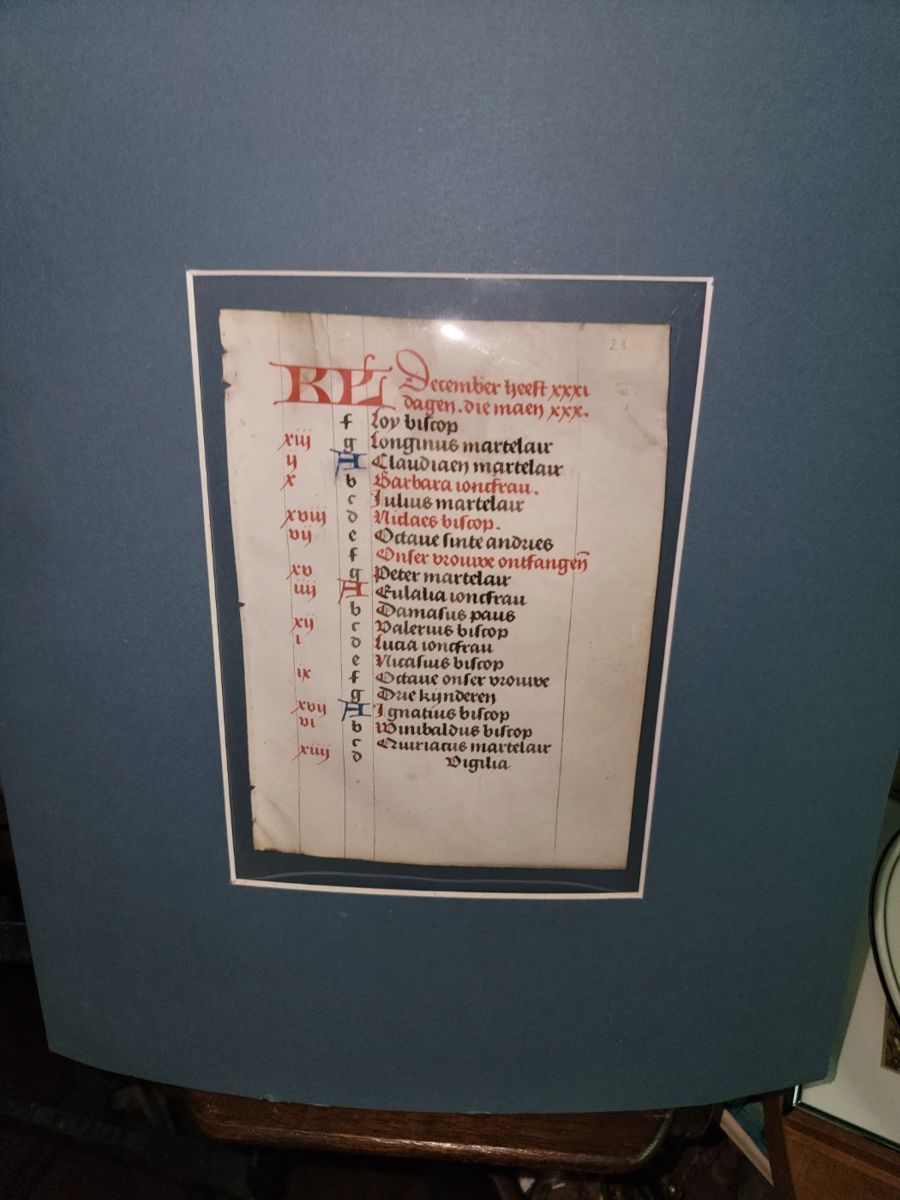 21
KL December heeft xxxi
dagen. die maen xxx.
f Loy biscop
xiij g Longinus martelair
ij A Claudiaen martelair
x b Barbara ioncfrau.
c Julius martelair
xviij d Niclaes biscop.
vij e Octaue sinte andries
f Onser vrouwe ontfangen̄
xv g Peter martelair
iiij A Eulalia ioncfrau
b Damasus paus
xij c Valerius biscop
i d Lucia ioncfrau
e Nicasius biscop
ix f Octaue onser vrouwe
g Drie kijnderen
xvij A Ignatius biscop
vi b Winibaldus biscop
c Quiriacus martelair
xiiij d Vigilia